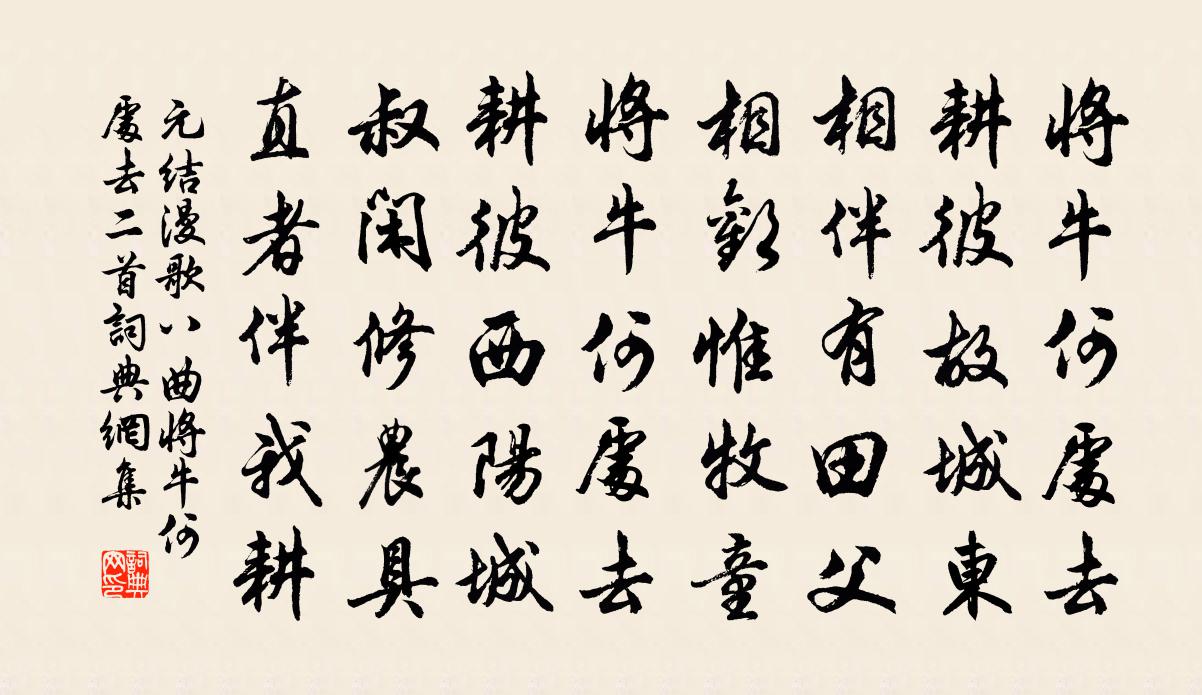 將牛何處去
耕彼故城東
相伴有田父
相歡惟牧童
將牛何處去
耕彼西陽城
叔閑修農具
直者伴我耕
元结漫歌八曲將牛何
處去二首詞典網集
詞典网印